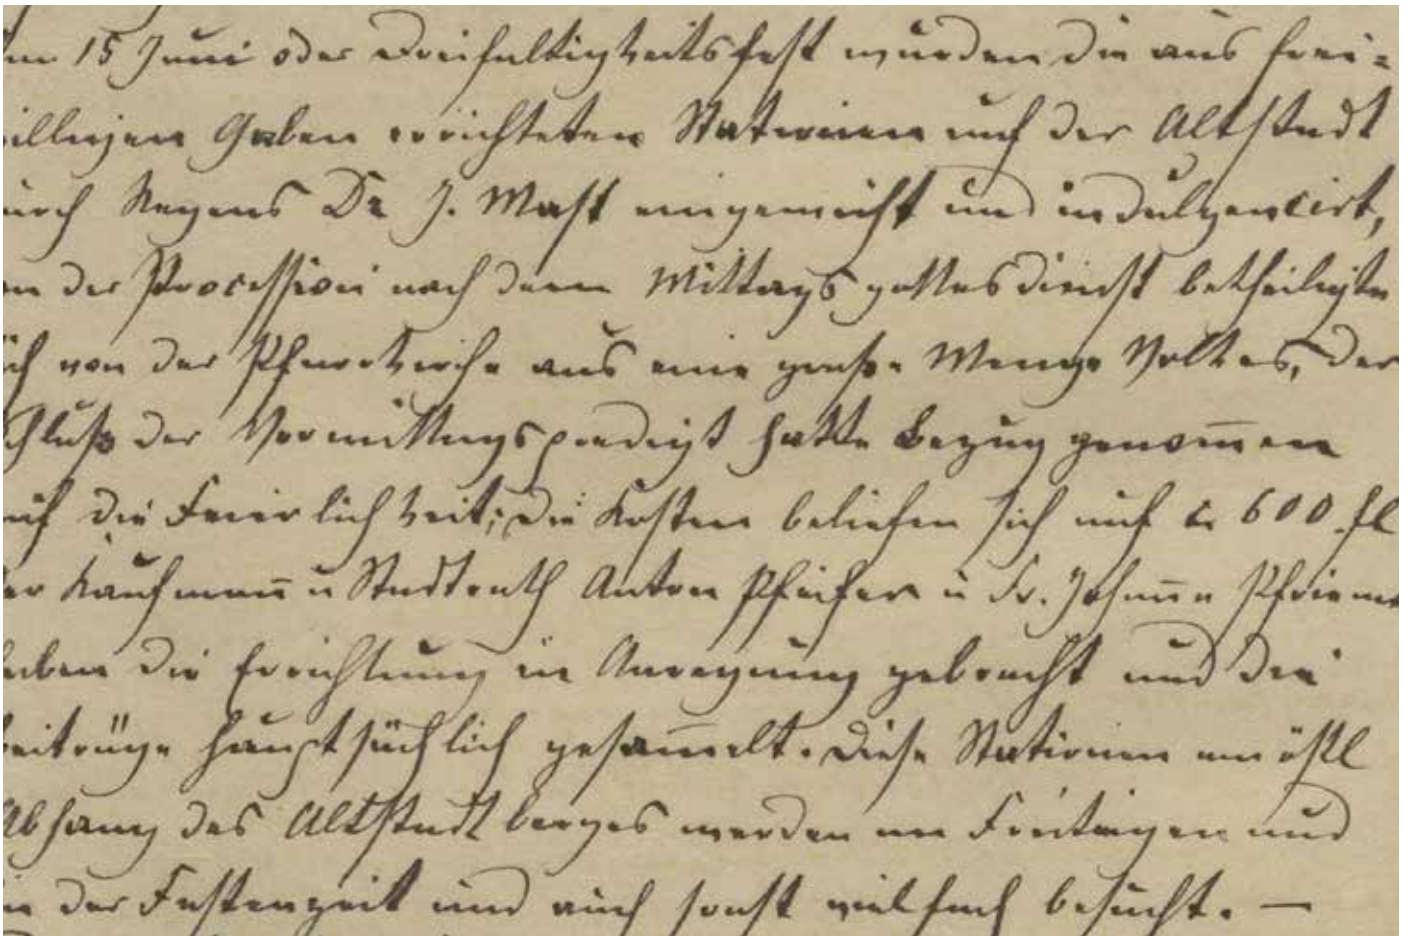 Am 15 Juni oder Dreifaltigkeitsfest wurden die aus frei-
willigen Gaben errichteten Stationen auf der Altstadt
durch Regens Dr J. Mast eingeweiht und indulgencirt,
an der Procession nach dem Mittagsgottesdienst betheiligte
sich von der Pfarrkirche aus eine große Menge Volkes, der
Schluß der Vormittagspredigt hatte Bezug genom̄en
auf die Feierlichkeit; die Kosten beliefen sich auf 600 fl
der Kaufman̄ u Stadtrath Anton Pfeifer u Fr. Johan̄a
haben die Errichtung in Anregung gebracht und die
Beiträge hauptsächlich gesam̄elt. Diese Stationen am östl
Abhang des Altstadtberges werden an Freitagen und
in der Fastenzeit und auch sonst vielfach besucht. —